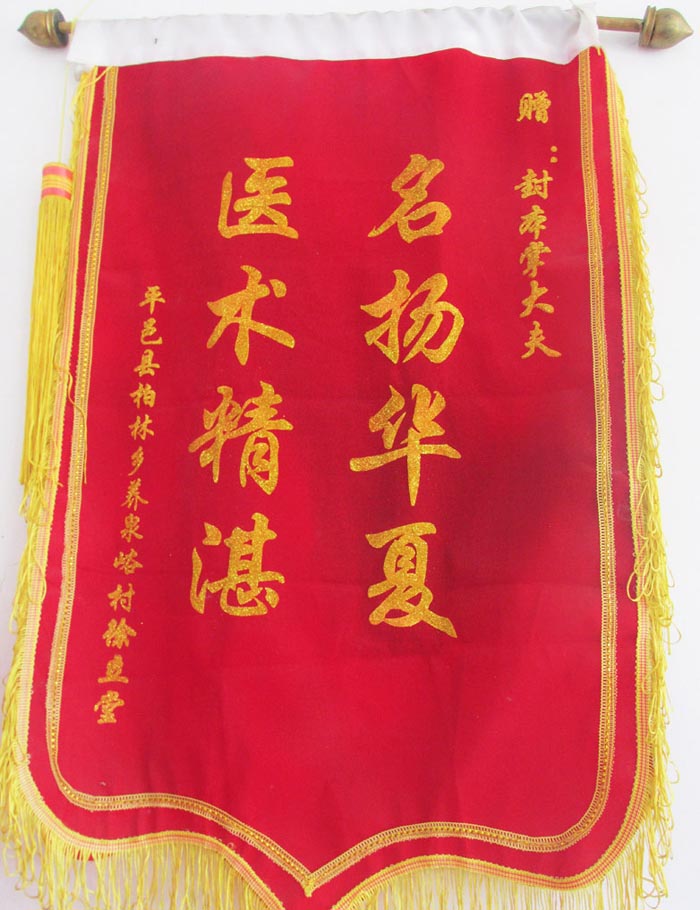 赠：封本掌大夫
名扬华夏
医术精湛
平邑县柏林乡养泉峪村徐立堂